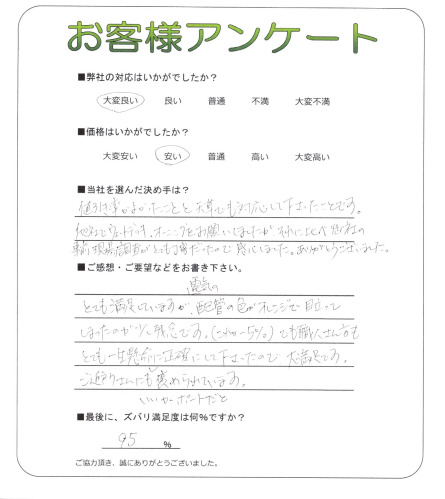 お客様アンケート
■弊社の対応はいかがでしたか？
大変良い 良い 普通 不満 大変不満
■価格はいかがでしたか？
大変安い 安い 普通 高い 大変高い
■当社を選んだ決め手は？
値引き率がよかったことと天草でも対応して下さったことです。
他社でウッドデッキ、オーニングをお願いしましたがそれに比べ御社の
事前現場調査がとても丁寧だったので感心しました。ありがとうございました。
■ご感想・ご要望などをお書き下さい。
電気の
とても満足していますが、配管の色がオレンジで目立って
しまったのが少し残念です。(これが-5%)でも職人さん方も
とても一生懸命に正確にして下さったので大満足です。
ご近所さんにも褒められています。
いいカーポートだと
■最後に、ズバリ満足度は何%ですか？
95 %
ご協力頂き、誠にありがとうございました。